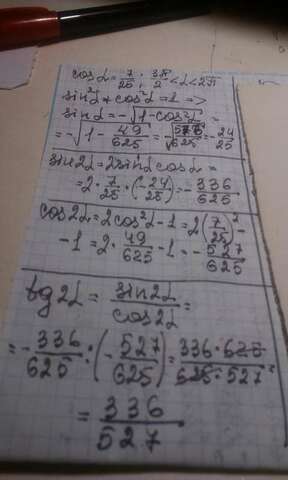 cosα = 7/25; 3π/2 < α < 2π
sin²α + cos²α = 1 =>
sinα = -√(1-cos²α) =
= -√(1 - 49/625) = -√(576/625) = -24/25
sin2α = 2sinα cosα =
= 2 · 7/25 · (-24/25) = -336/625
cos2α = 2cos²α - 1 = 2(7/25)² -
- 1 = 2 · 49/625 - 1 = -527/625
tg2α = sin2α/cos2α =
= -336/625 : (-527/625) = 336·625/625·527 =
= 336/527